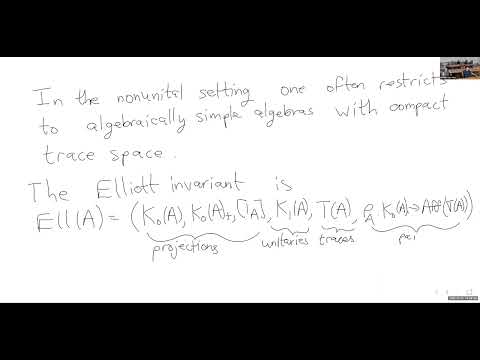 In the nonunital setting one often restricts
to algebraically simple algebras with compact
trace space.
The Elliott invariant is
Ell(A) = (K₀(A), K₀(A)₊, [1_A], K₁(A), T(A), ρ_A K₀(A)→Aff(T(A)))
projections unitaries traces pai